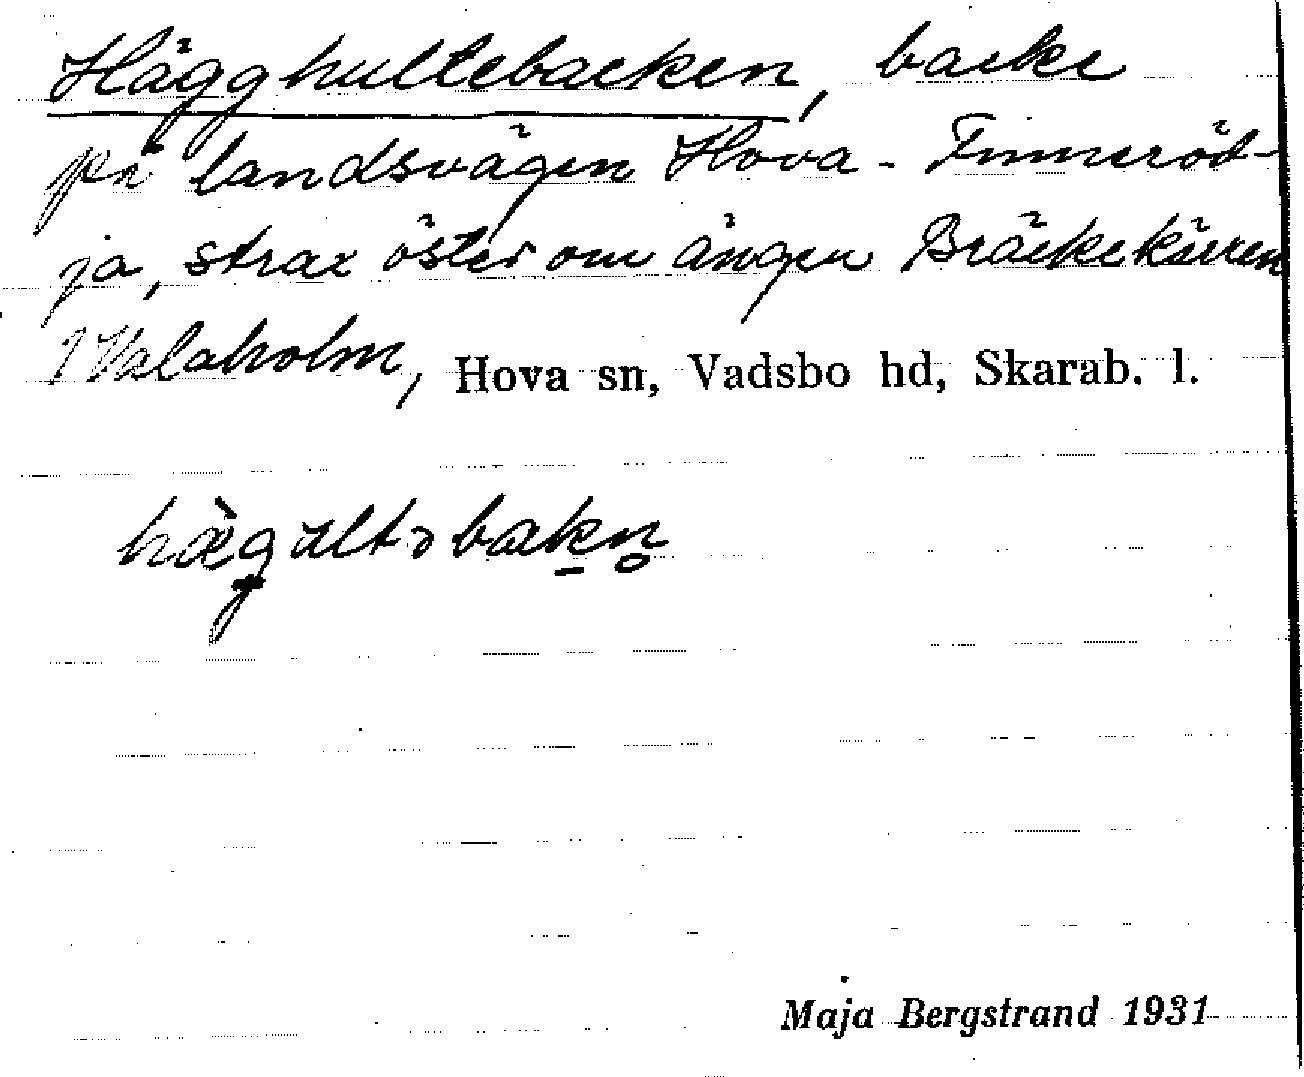 Hägghultebacken, backe
på landsvägen Hova - Finneröd-
ja, strax öster om ängen Bräckekärren
i Valaholm, Hova sn, Vadsbo hd, Skarab. l.
hægultəbakn̥
Maja Bergstrand 1931